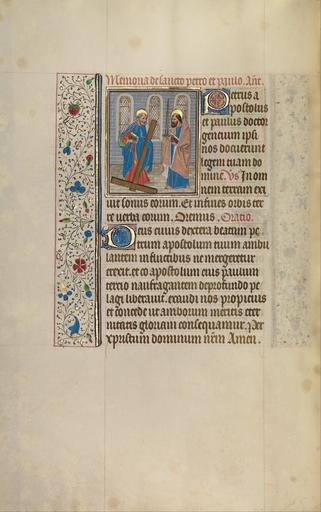 Memoria de sancto petro et paulo. Añt.
Petrus a
postolus
et paulus doctor
gencium ipsi
nos docuerunt
legem tuam do
mine. Vs In om
nem terram exi
uit sonus eorum. Et in fines orbis ter
re verba eorum. Oremus. Oracio.
Deus cuius dextera beatum pe
trum apostolum tuum ambu
lantem in fluctibus ne mergeretur
erexit. et co apostolum eius paulum
tercio naufragantem de profundo pe
lagi liberauit. exaudi nos propicius
et concede ut amborum meritis eter
nitatis gloriam consequamur. Per
xpristum dominum nr̃m Amen.